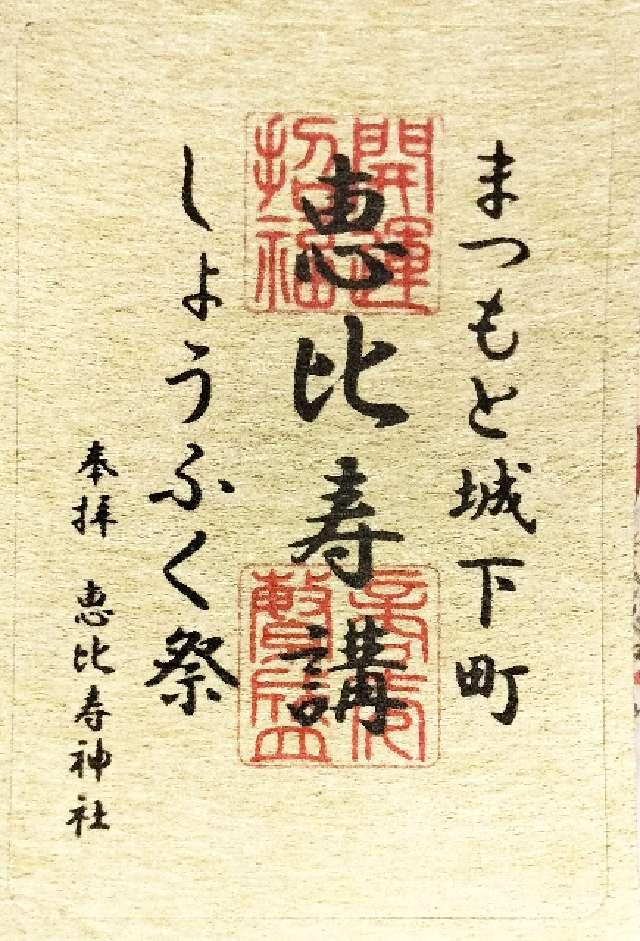 まつもと城下町
開運招福
恵比寿講
商売繁盛
しょうふく祭
奉拝 恵比寿神社